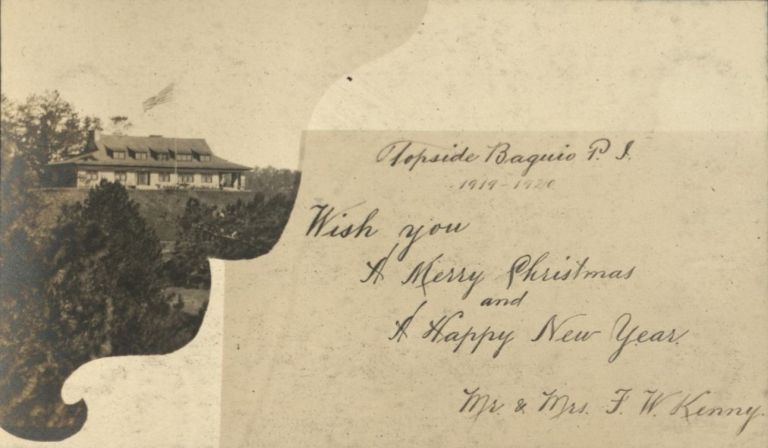 Topside Baguio P. I.
1919-1920
Wish you
A Merry Christmas
and
A Happy New Year.
Mr. & Mrs. F. W. Kenny.